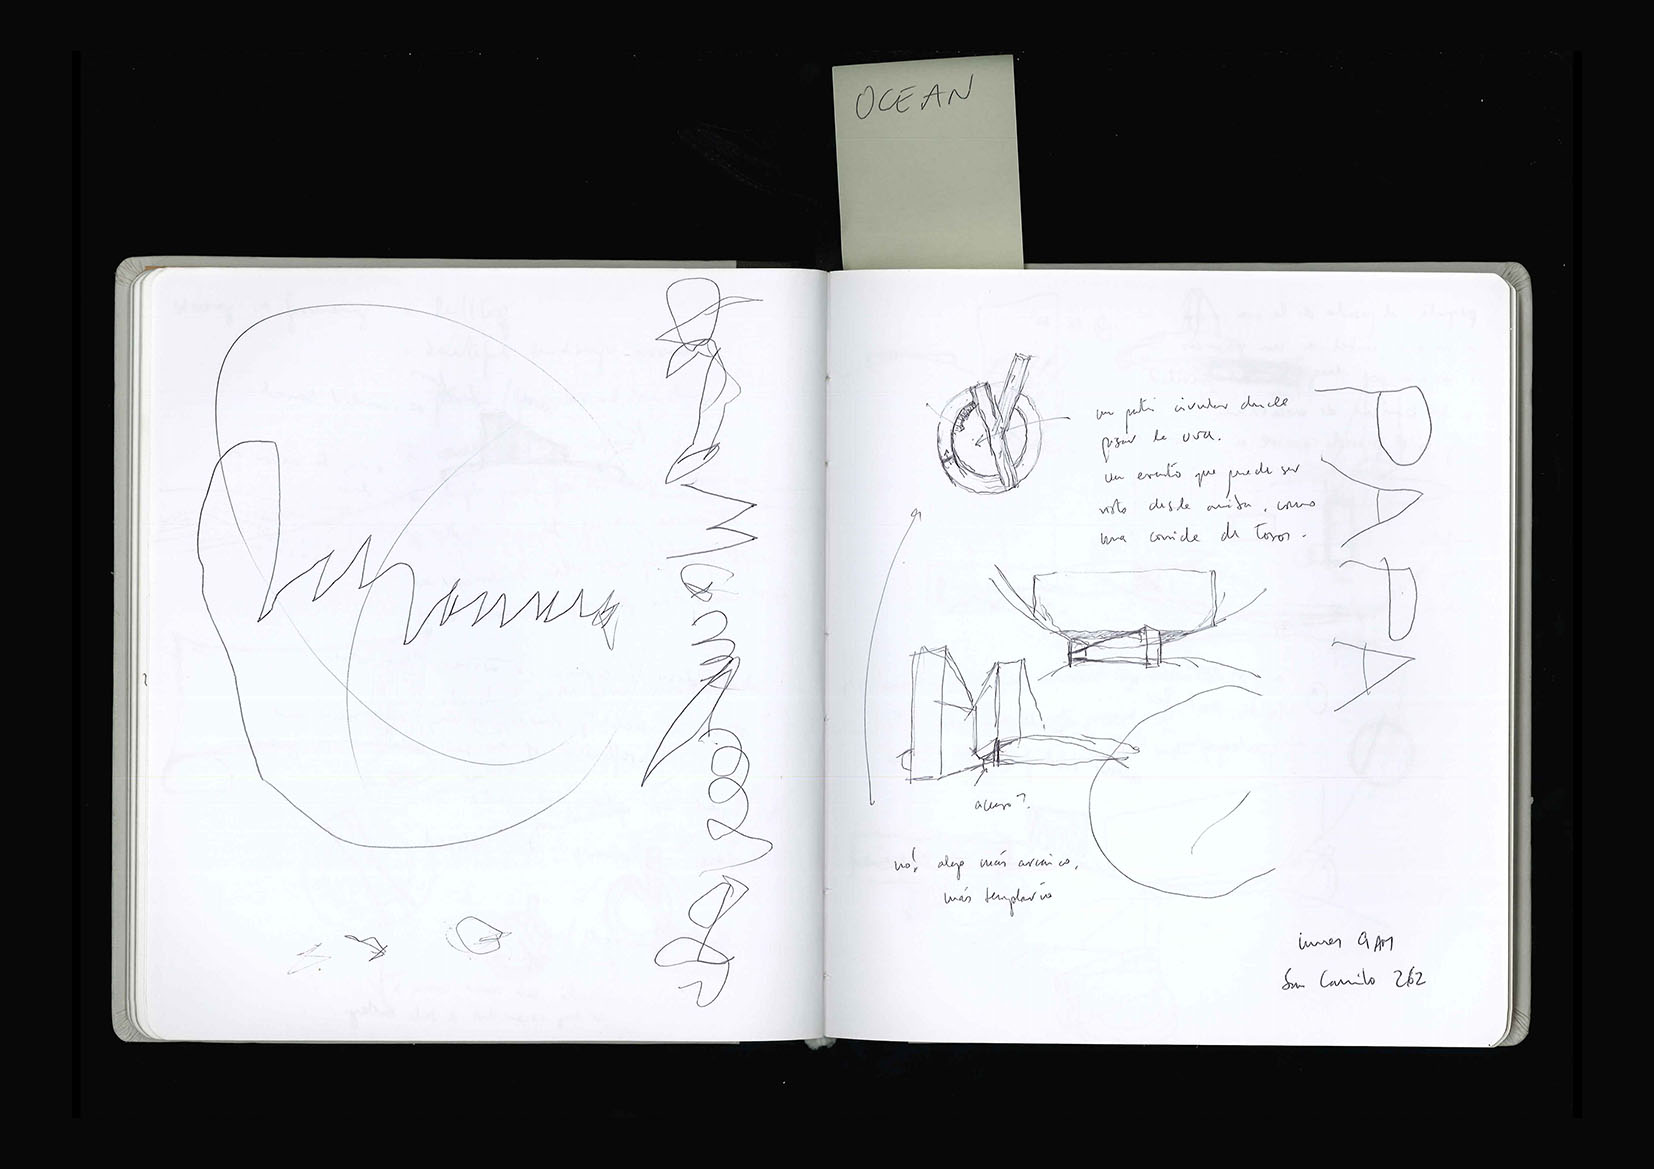 OCEAN
un patio circular desde
pisar la uva.
un evento que puede ser
visto desde arriba, como
una corrida de toros.
PAPA
acceso?
no! algo más arcaico,
más templario
lunes 9 AM
San Camilo 262